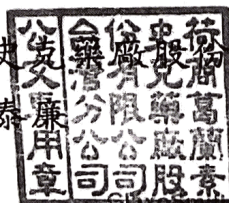 荷商葛蘭素
史克藥廠股
份有限公司
台灣分公司
公文專用章
史克藥廠
泰廉